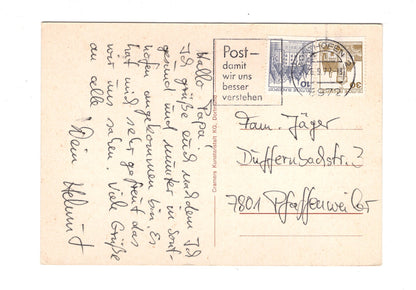 Hallo Papa!
Ich grüße euch und dem Ich
gesund und munter in Sont-
hofen angekommen bin. Es
hat mich sehr gefreut das
wir uns sahen. Viele Grüße
an alle!
Dein Helmut
Post-
damit
wir uns
besser
verstehen
10
30
Fam. Jäger
7801 Pfaffenweiler